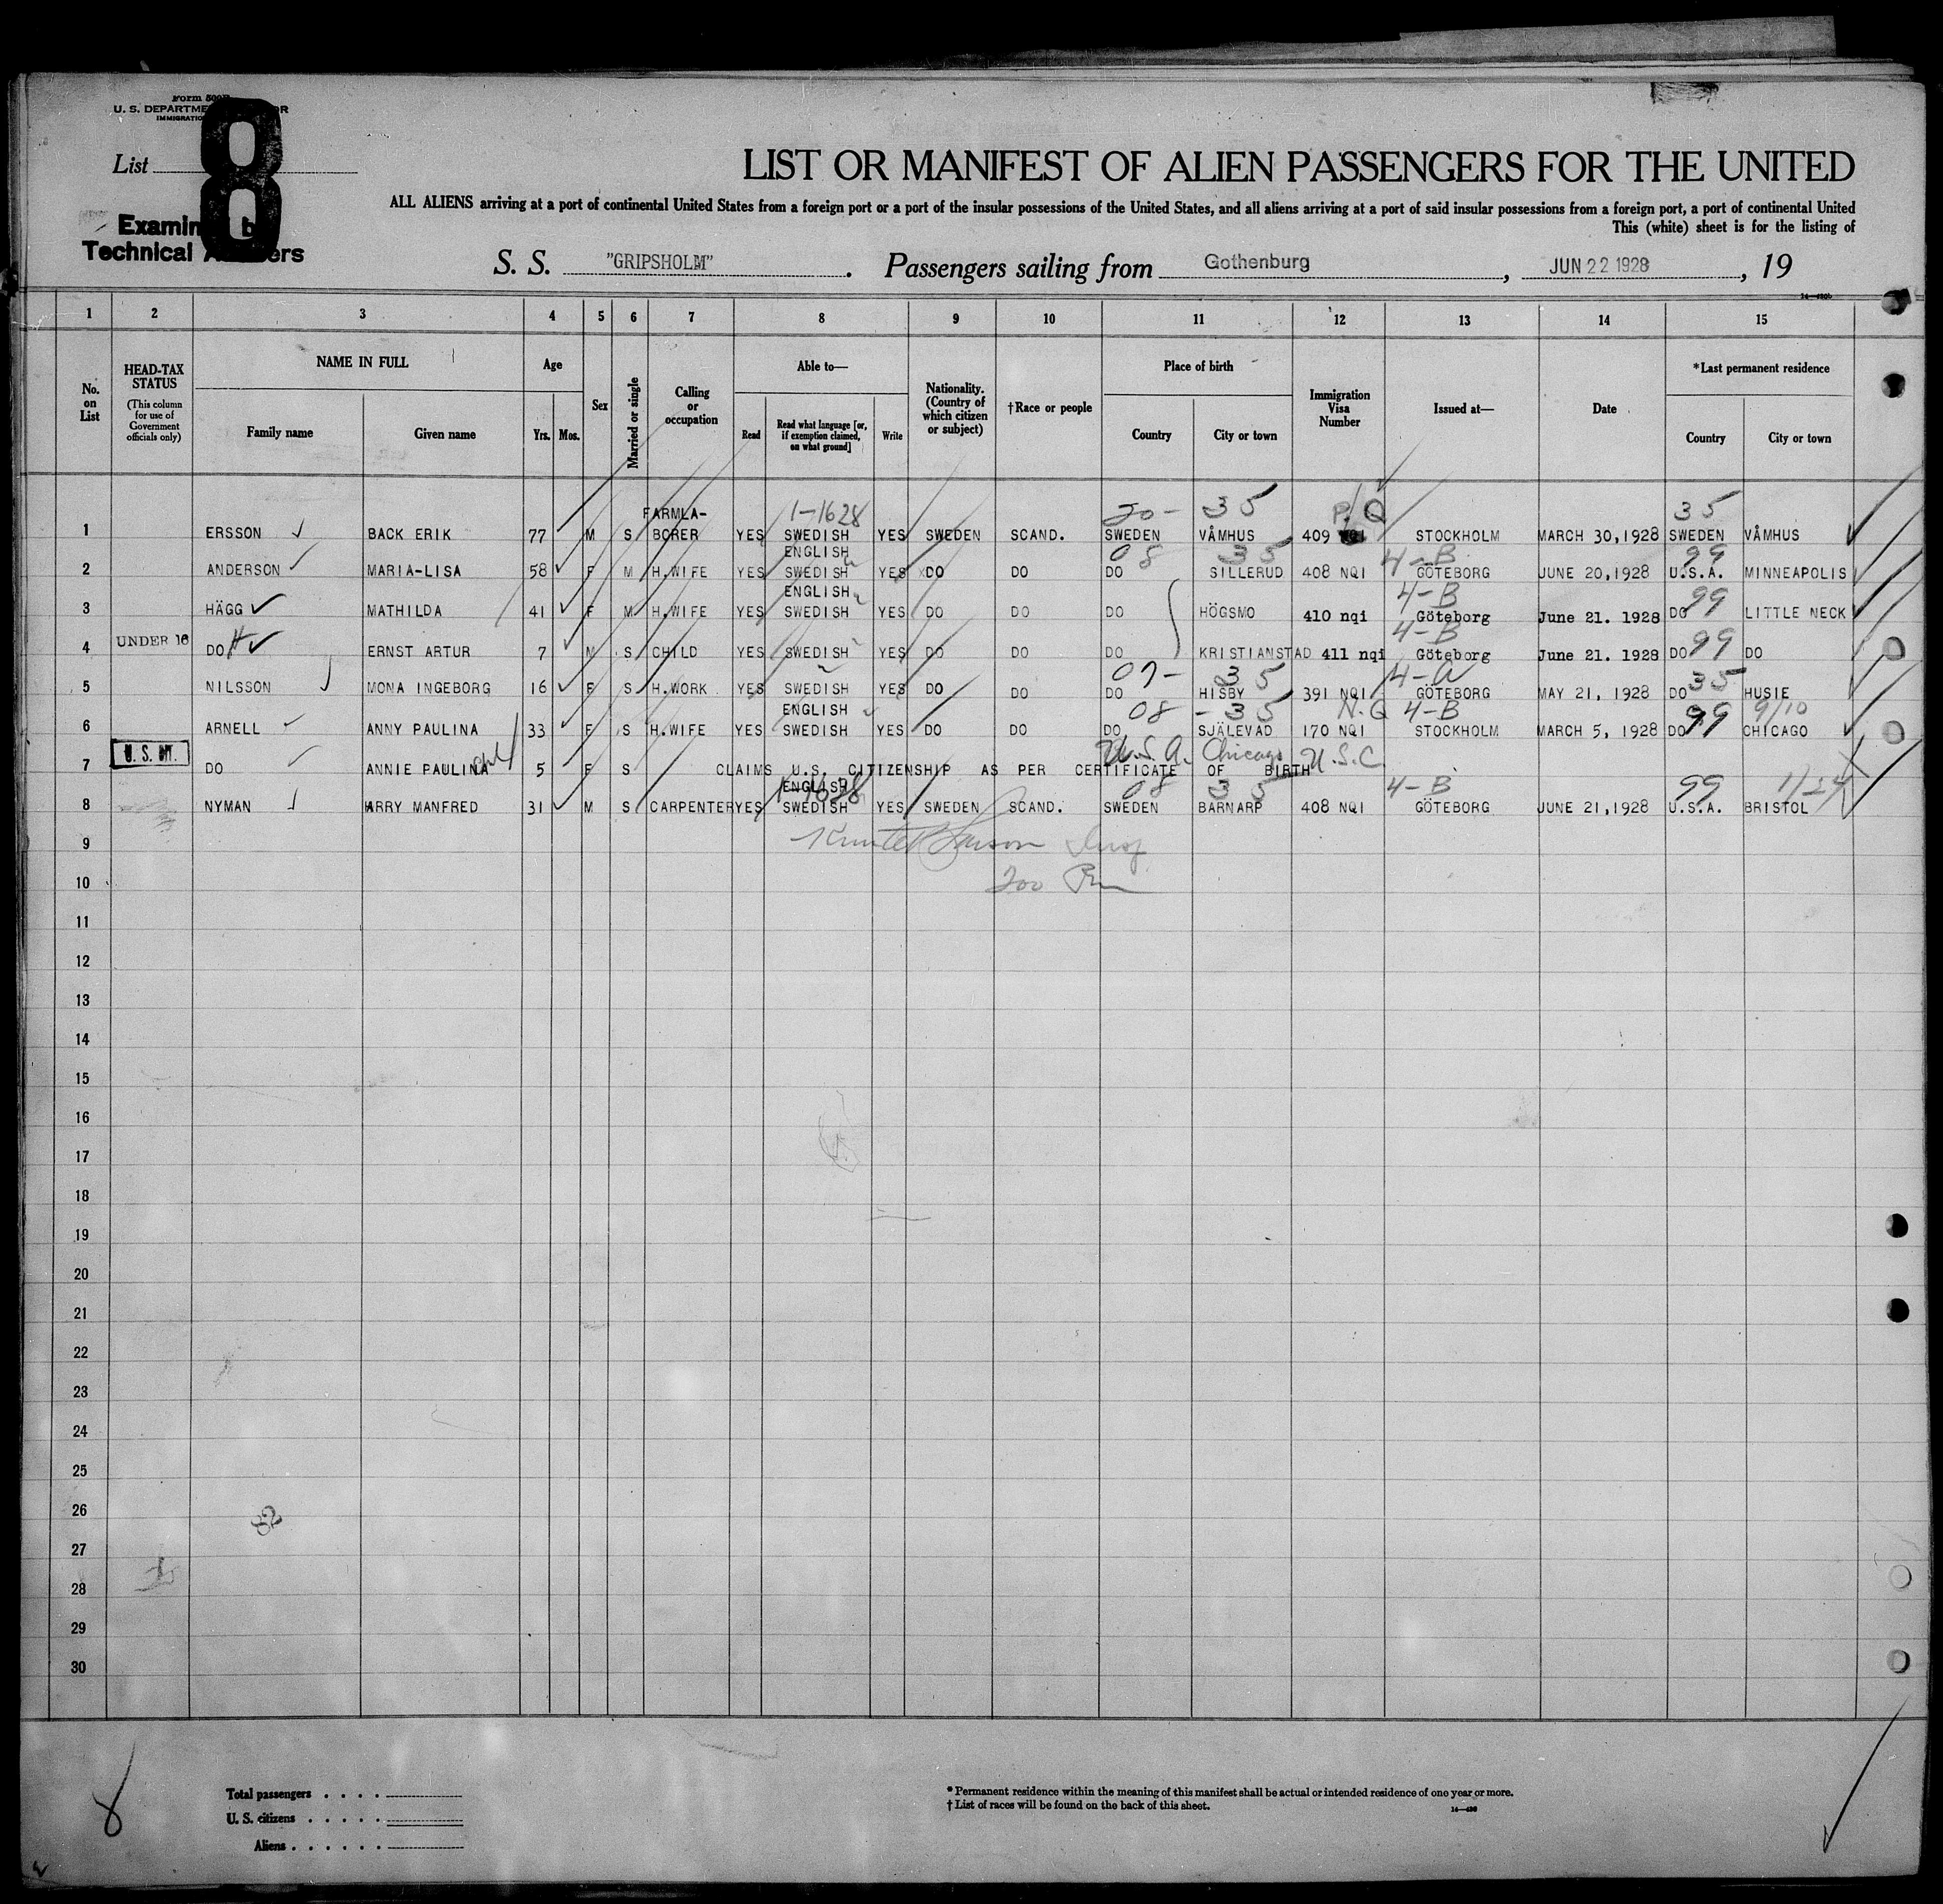 Form 500
U. S. DEPARTME OR
IMMIGRATIO
8
List
LIST OR MANIFEST OF ALIEN PASSENGERS FOR THE UNITED
ALL ALIENS arriving at a port of continental United States from a foreign port or a port of the insular possessions of the United States, and all aliens arriving at a port of said insular possessions from a foreign port, a port of continental United
This (white) sheet is for the listing of
Examin b
Technical A ers
S. S. "GRIPSHOLM". Passengers sailing from Gothenburg, JUN 22 1928, 19
1 2 3 4 5 6 7 8 9 10 11 12 13 14 15
No. on List
HEAD-TAX STATUS
(This column for use of Government officials only)
NAME IN FULL
Family name
Given name
Age
Yrs. Mos.
Sex
Married or single
Calling or occupation
Able to—
Read
Read what language [or, if exemption claimed, on what ground]
Write
Nationality. (Country of which citizen or subject)
†Race or people
Place of birth
Country
City or town
Immigration Visa Number
Issued at—
Date
*Last permanent residence
Country
City or town
FARMLA- 1-1628 20- 35 P/Q 35
1 ERSSON BACK ERIK 77 M S BORER YES SWEDISH YES SWEDEN SCAND. SWEDEN VÅMHUS 409 STOCKHOLM MARCH 30,1928 SWEDEN VÅMHUS
ENGLISH 08 35 4-B 99
2 ANDERSON MARIA-LISA 58 F M H.WIFE YES SWEDISH YES DO DO DO SILLERUD 408 NQI GÖTEBORG JUNE 20,1928 U.S.A. MINNEAPOLIS
ENGLISH 4-B 99
3 HÄGG MATHILDA 41 F M H.WIFE YES SWEDISH YES DO DO DO HÖGSMO 410 nqi Göteborg June 21. 1928 DO LITTLE NECK
UNDER 16 4-B 99
4 DO H ERNST ARTUR 7 M S CHILD YES SWEDISH YES DO DO DO KRISTIANSTAD 411 nqi Göteborg June 21. 1928 DO DO
07- 35 4-A 35
5 NILSSON MONA INGEBORG 16 F S H.WORK YES SWEDISH YES DO DO DO HISBY 391 NQI GÖTEBORG MAY 21, 1928 DO HUSIE
ENGLISH 08 - 35 N.Q 4-B 99 9/10
6 ARNELL ANNY PAULINA 33 F S H.WIFE YES SWEDISH YES DO DO DO SJÄLEVAD 170 NQI STOCKHOLM MARCH 5, 1928 DO CHICAGO
U.S.A. Chicago U.S.C.
7 DO ANNIE PAULINA 5 F S CLAIMS U.S. CITIZENSHIP AS PER CERTIFICATE OF BIRTH
ENGLISH 1-1628 08 35 4-B 99
8 NYMAN ARRY MANFRED 31 M S CARPENTER YES SWEDISH YES SWEDEN SCAND. SWEDEN BARNARP 408 NQI GÖTEBORG JUNE 21,1928 U.S.A. BRISTOL
9
10
11
12
13
14
15
16
17
18
19
20
21
22
23
24
25
26
27
28
29
30
8
Total passengers
U. S. citizens
Aliens
* Permanent residence within the meaning of this manifest shall be actual or intended residence of one year or more.
† List of races will be found on the back of this sheet.